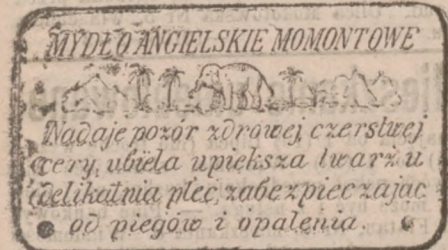 MYDŁO ANGIELSKIE MOMONTOWE
Nadaje pozór zdrowej czerstwej
cery, ubiela upiększa twarz u
delikatnia płeć, zabezpieczając
od piegów i opalenia.